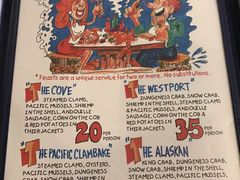 "Feasts are a unique service for two or more. No substitutions.
"THE COVE"
STEAMED CLAMS,
PACIFIC MUSSELS, SHRIMP
IN THE SHELL, ANDOUILLE
SAUSAGE, CORN ON THE COB
& RED POTATOES IN
THEIR JACKETS
20 PER PERSON
"THE WESTPORT"
DUNGENESS CRAB, SNOW CRAB,
SHRIMP IN THE SHELL, STEAMED CLAMS
& PACIFIC MUSSELS, ANDOUILLE
SAUSAGE, CORN ON THE COB &
RED POTATOES IN
THEIR JACKETS
35 PER PERSON
"THE PACIFIC CLAMBAKE"
STEAMED CLAMS, OYSTERS,
PACIFIC MUSSELS, DUNGENESS
CRAB, SNOW CRAB, SHRIMP IN
"THE ALASKAN
KING CRAB, DUNGENESS CRAB,
SNOW CRAB, SHRIMP IN THE SHELL,
STEAMED CLAMS, PACIFIC MUSSELS,